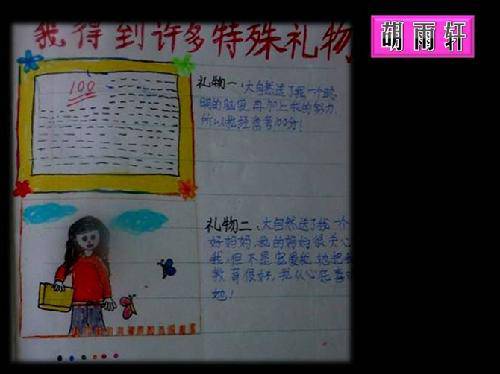 我得到许多特殊礼物
胡雨轩
100
礼物一、大自然送了我一个聪
明的脑袋,再加上我的努力,
所以我经常考100分!
礼物二、大自然送了我一个
好妈妈,我的妈妈很关心
我,但不是宠爱我,她把我
教育很好,我从心底喜
她!